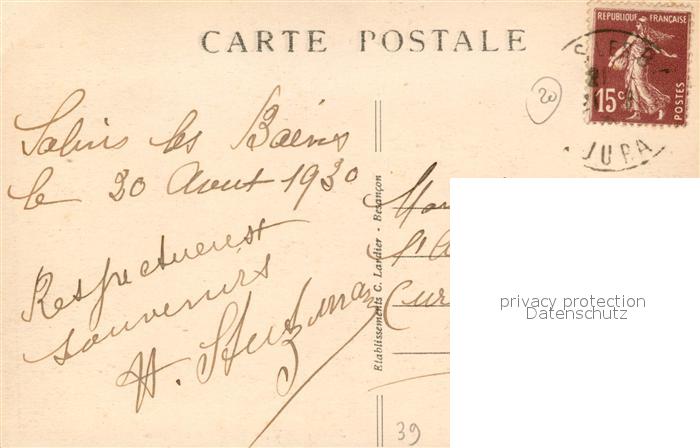 CARTE POSTALE
REPUBLIQUE FRANÇAISE
15c
POSTES
JURA
20
Salins les Bains
le 20 Aout 1930
Respectueux
souvenirs
H.
Etablissements C. Lardier - Besançon
privacy protection
Datenschutz
39